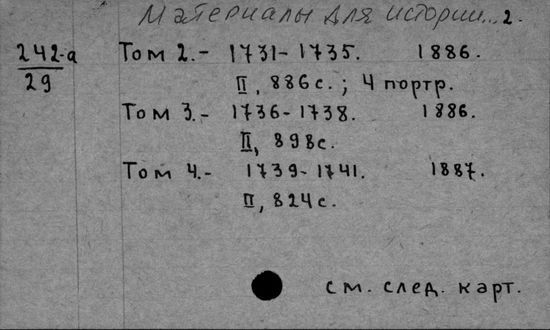 Материалы для истории... 2.
242-а
29
Том 2.- 1731-1735. 1886.
II, 886с.; 4 портр.
Том 3.- 1736-1738. 1886.
II, 898с.
Том 4.- 1739-1741. 1887.
II, 824с.
см. след. карт.